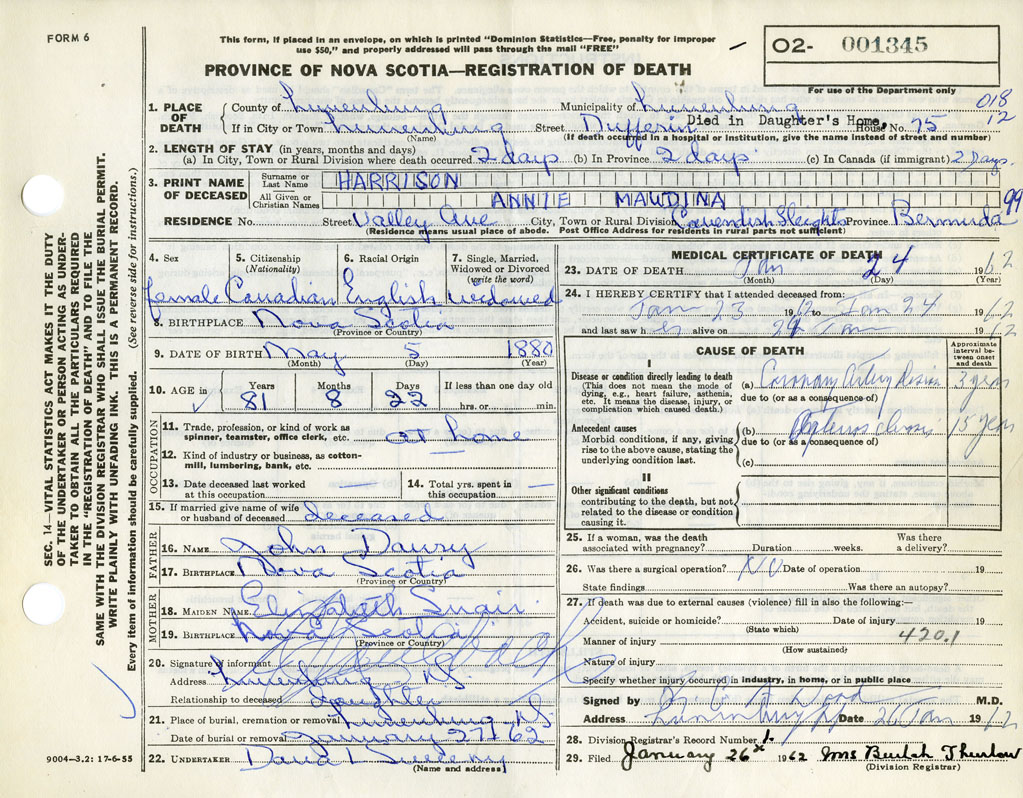 FORM 6
This form, if placed in an envelope, on which is printed "Dominion Statistics—Free, penalty for improper
use $50," and properly addressed will pass through the mail "FREE"
02- 001345
PROVINCE OF NOVA SCOTIA—REGISTRATION OF DEATH
For use of the Department only
018
12
1. PLACE OF DEATH County of Lunenburg Municipality of Lunenburg
Died in Daughter's Home,
If in City or Town Lunenburg Street Dufferin House No. 75
(Name) (If death occurred in a hospital or Institution, give the name instead of street and number)
2. LENGTH OF STAY (in years, months and days)
(a) In City, Town or Rural Division where death occurred 2 days (b) In Province 2 days (c) In Canada (if immigrant) 2 Days
3. PRINT NAME OF DECEASED Surname or Last Name HARRISON
All Given or Christian Names ANNIE MAUDINA
99
RESIDENCE No. Street Valley Ave City, Town or Rural Division Cavendish Sleights Province Bermuda
(Residence means usual place of abode. Post Office Address for residents in rural parts not sufficient)
4. Sex 5. Citizenship (Nationality) 6. Racial Origin 7. Single, Married, Widowed or Divorced (write the word)
female Canadian English widowed
8. BIRTHPLACE Nova Scotia
(Province or Country)
9. DATE OF BIRTH May 5 1880
(Month) (Day) (Year)
10. AGE in Years Months Days If less than one day old
81 8 22 hrs. or min.
OCCUPATION
11. Trade, profession, or kind of work as spinner, teamster, office clerk, etc. at home
12. Kind of industry or business, as cotton-mill, lumbering, bank, etc.
13. Date deceased last worked at this occupation
14. Total yrs. spent in this occupation —
15. If married give name of wife or husband of deceased deceased
FATHER
16. NAME John Daury
17. BIRTHPLACE Nova Scotia
(Province or Country)
MOTHER
18. MAIDEN NAME Elizabeth Snair
19. BIRTHPLACE Nova Scotia
(Province or Country)
20. Signature of informant
Address Lunenburg N.S.
Relationship to deceased daughter
21. Place of burial, cremation or removal Lunenburg N.S.
Date of burial or removal January 27/62
22. UNDERTAKER David Sweeny
(Name and address)
MEDICAL CERTIFICATE OF DEATH
23. DATE OF DEATH Jan 24 1962
(Month) (Day) (Year)
24. I HEREBY CERTIFY that I attended deceased from:
Jan 23 1962 to Jan 24 1962
and last saw her alive on 24 Jan 1962
CAUSE OF DEATH
Approximate interval between onset and death
I
Disease or condition directly leading to death
(This does not mean the mode of dying, e.g., heart failure, asthenia, etc. It means the disease, injury, or complication which caused death.)
(a) Coronary Artery Disease 3 years
due to (or as a consequence of)
Antecedent causes
Morbid conditions, if any, giving rise to the above cause, stating the underlying condition last.
(b) 15 years
due to (or as a consequence of)
(c)
II
Other significant conditions
contributing to the death, but not related to the disease or condition causing it.
25. If a woman, was the death associated with pregnancy? Duration weeks. Was there a delivery?
26. Was there a surgical operation? NO Date of operation 19
State findings Was there an autopsy?
27. If death was due to external causes (violence) fill in also the following:—
Accident, suicide or homicide? Date of injury 19
(State which)
420.1
Manner of injury
(How sustained)
Nature of injury
Specify whether injury occurred in industry, in home, or in public place
Signed by Wood M.D.
Address Lunenburg NS Date 26 Jan 1962
28. Division Registrar's Record Number 1.
29. Filed January 26th 1962 Mrs Beulah Thurlow
(Division Registrar)
SEC. 14—VITAL STATISTICS ACT MAKES IT THE DUTY
OF THE UNDERTAKER OR PERSON ACTING AS UNDER-
TAKER TO OBTAIN ALL THE PARTICULARS REQUIRED
IN THE "REGISTRATION OF DEATH" AND TO FILE THE
SAME WITH THE DIVISION REGISTRAR WHO SHALL ISSUE THE BURIAL PERMIT.
WRITE PLAINLY WITH UNFADING INK. THIS IS A PERMANENT RECORD.
Every item of information should be carefully supplied. (See reverse side for instructions.)
9004—3.2: 17-6-55